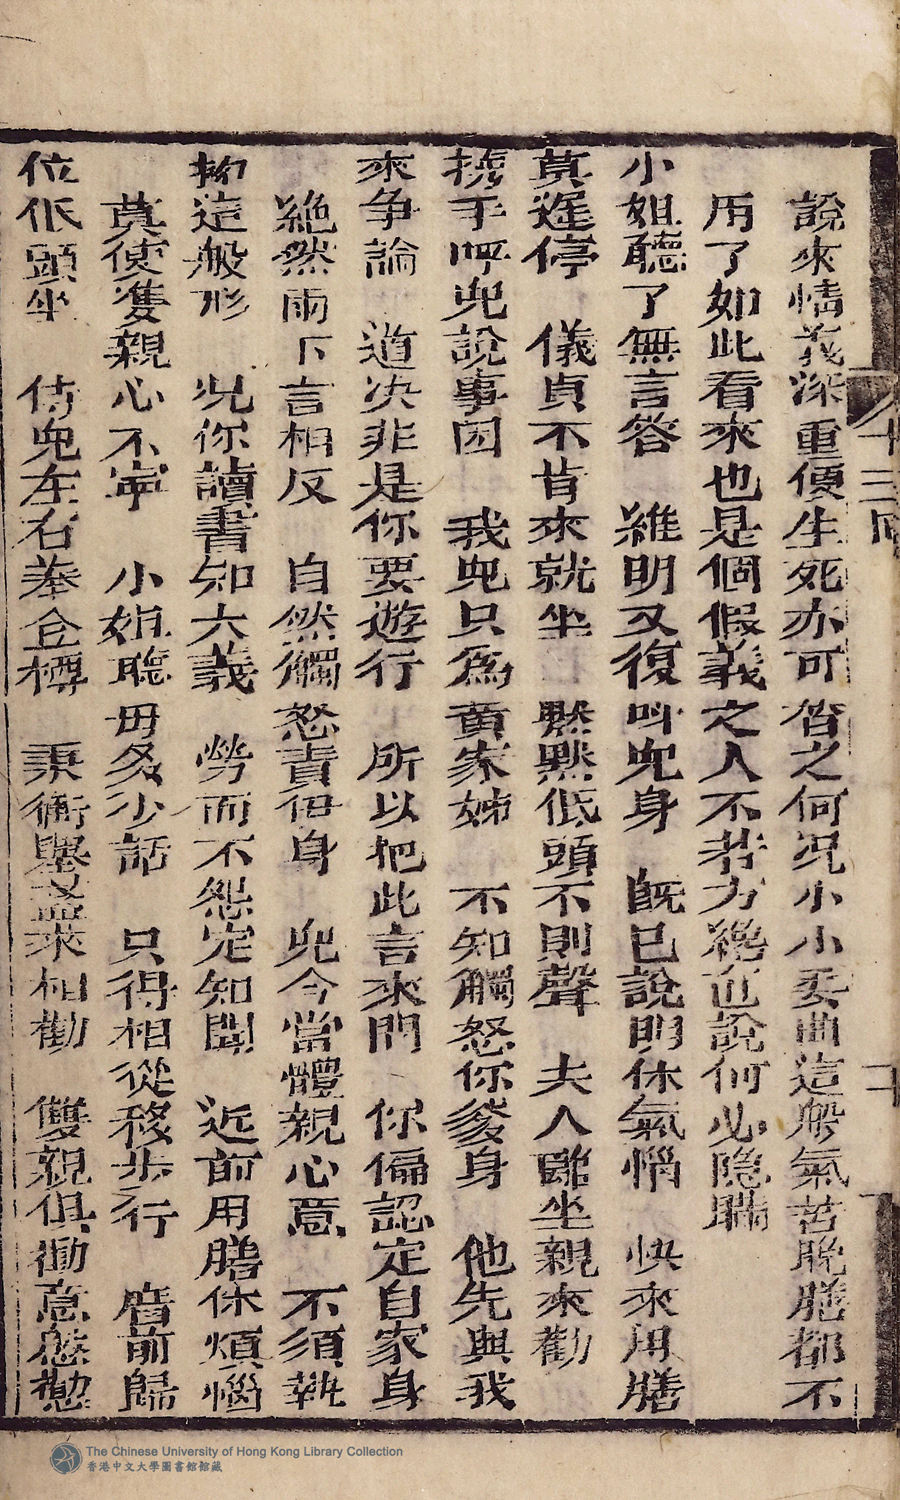 說來情義深重便生死亦可㫮之何况小小委曲這般氣苦晚膳都不
用了如此看來也是個假義之人不若方纔直說何必隐瞞
小姐聽了無言答　維明又復叫兒身　旣已說明休氣惱　快來用膳
莫遲停　儀貞不肯來就坐　默默低頭不則聲　夫人離坐親來勸
携手呼兒說事因　我兒只爲黄家姊　不知觸怒你爹身　他先與我
來争論　道决非是你要遊行　所以把此言來問　你偏認定自家身
絶然兩下言相反　自然觸怒責伊身　兒今當體親心意　不須執
拗這般形　况你讀書知六義　勞而不怨定知聞　近前用膳休煩惱
莫使隻親心不寧　小姐聽毋多少話　只得相從移步行　席前歸
位低頭坐　侍兒左右奉金樽　秉衡舉盃來相勸　雙親俱衝意慇懃
十三回
二十
The Chinese University of Hong Kong Library Collection
香港中文大學圖書館館藏